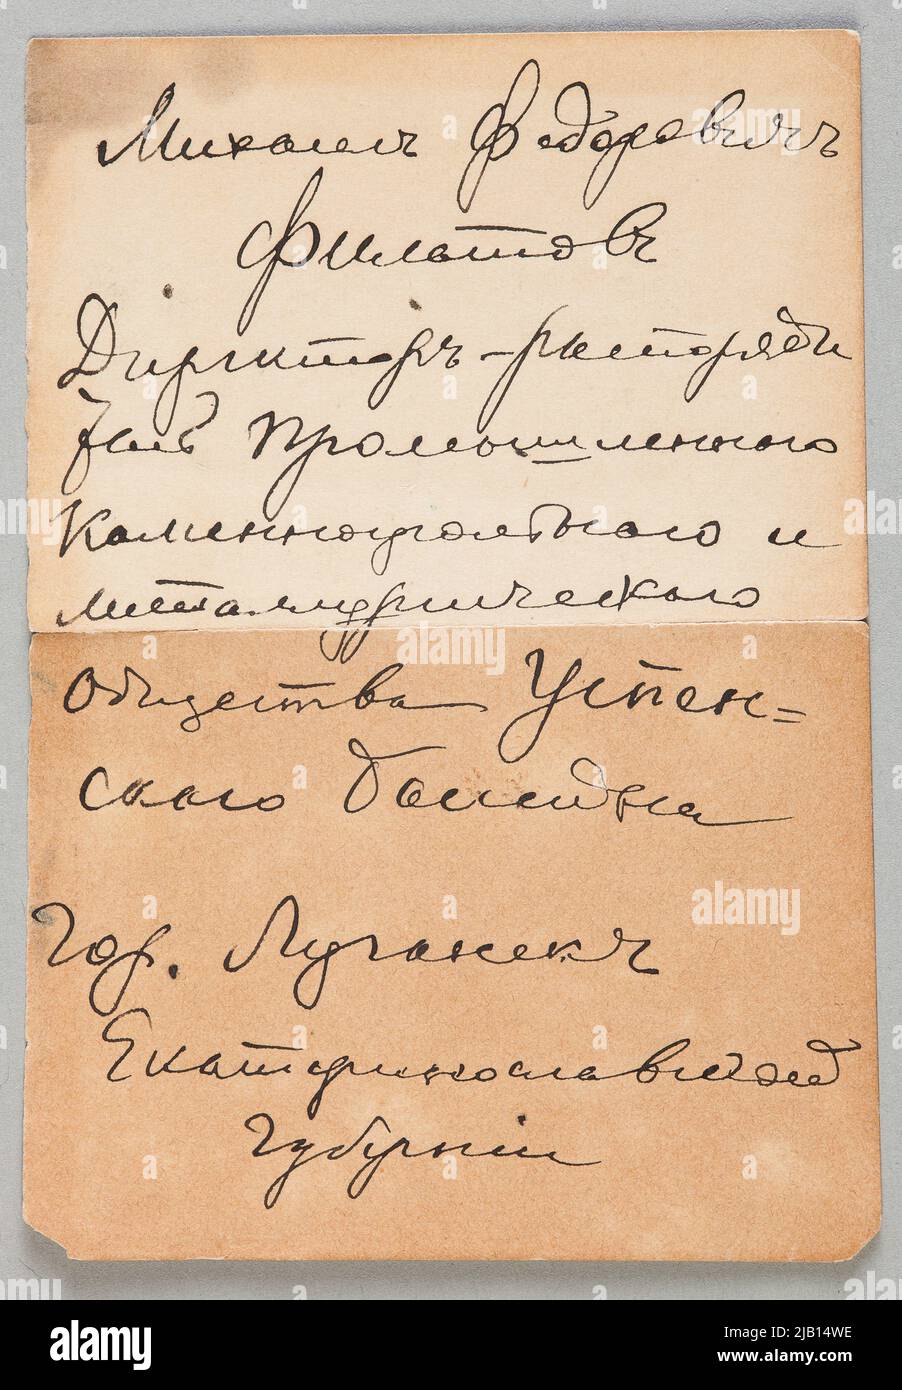 Михаилъ Федоровичъ
Филатовъ
Директоръ-распоряди
тель Промышленнаго
Каменноугольнаго и
металлургическаго
Общества Успен=
скаго бассейна
Гор. Луганскъ
Екатеринославской
Губерніи
alamy
Image ID: 2JB14WE
www.alamy.com